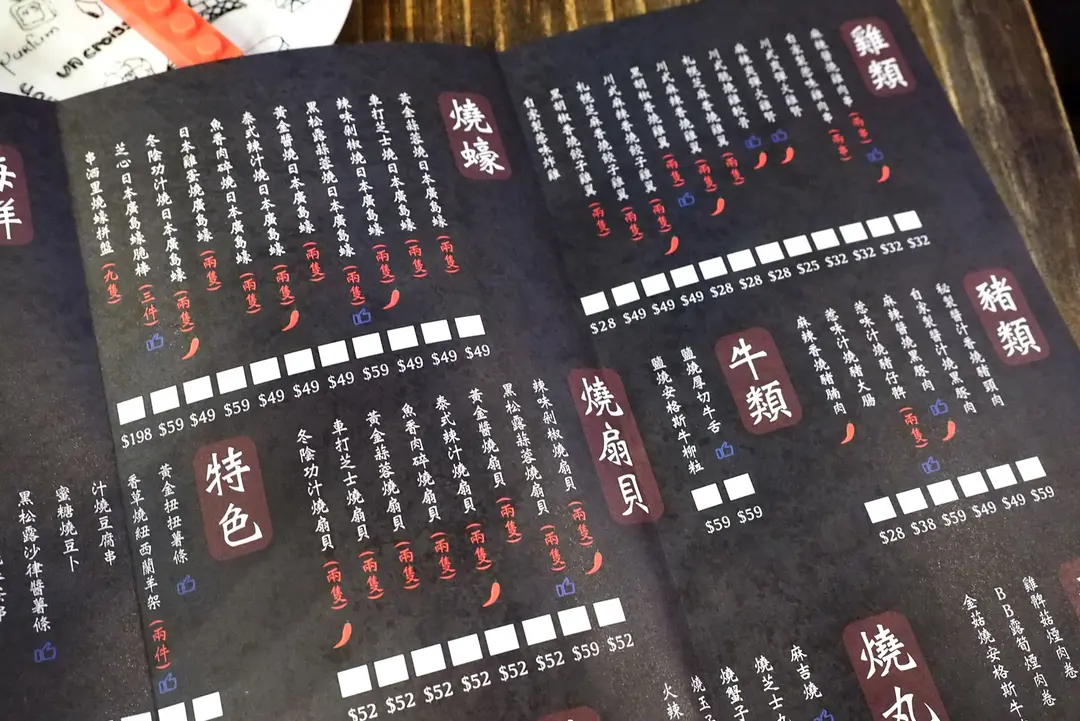 雞類
麻辣惹味雞肉串 (兩串)
自家製惹味雞肉串 (兩串)
川式麻辣大雞腎
川式脆燒雞軟骨
札幌芝麻香燒雞翼 (兩隻)
川式麻辣香燒雞翼 (兩隻)
黑胡椒香燒雞翼 (兩隻)
川式麻辣香燒餃子雞翼 (兩隻)
札幌芝麻香燒餃子雞翼 (兩隻)
黑胡椒香燒餃子雞翼 (兩隻)
自家製惹味炸雞
$28 $49 $49 $49 $28 $28 $28 $25 $32 $32 $32 $32
燒蠔
黃金蒜蓉燒日本廣島蠔 (兩隻)
車打芝士燒日本廣島蠔 (兩隻)
辣味剁椒燒日本廣島蠔 (兩隻)
黑松露蒜蓉燒日本廣島蠔 (兩隻)
黃金醬燒日本廣島蠔 (兩隻)
泰式辣汁燒日本廣島蠔 (兩隻)
魚香肉碎燒日本廣島蠔 (兩隻)
日本雞蛋燒日本廣島蠔 (兩隻)
冬陰功汁燒日本廣島蠔 (兩隻)
芝心日本廣島蠔脆棒 (三件)
串酒里燒蠔拼盤 (九隻)
$198 $59 $49 $59 $49 $49 $49 $59 $49 $49 $49
豬類
秘製醬汁香燒豬頸肉
自家製醬汁燒黑豚肉
麻辣醬燒黑豚肉
惹味汁燒豬仔髀 (兩隻)
惹味汁燒豬大腸
麻辣香燒豬腩肉
$28 $38 $59 $49 $49 $59
牛類
鹽燒厚切牛舌
鹽燒安格斯牛柳粒
$59 $59
燒扇貝
辣味剁椒燒扇貝 (兩隻)
黑松露蒜蓉燒扇貝 (兩隻)
黃金醬燒扇貝 (兩隻)
泰式辣汁燒扇貝 (兩隻)
魚香肉碎燒扇貝 (兩隻)
黃金蒜蓉燒扇貝 (兩隻)
車打芝士燒扇貝 (兩隻)
冬陰功汁燒扇貝 (兩隻)
$52 $52 $52 $52 $52 $52 $59 $52
特色
黃金扭扭薯條
香草燒紐西蘭羊架 (兩件)
汁燒豆腐串
蜜糖燒豆卜
黑松露沙律醬薯條
雞髀菇煙肉卷
BB露筍煙肉卷
金菇燒安格斯牛
燒丸
麻吉燒
燒芝士丸
燒蟹子
燒玉子
火辣